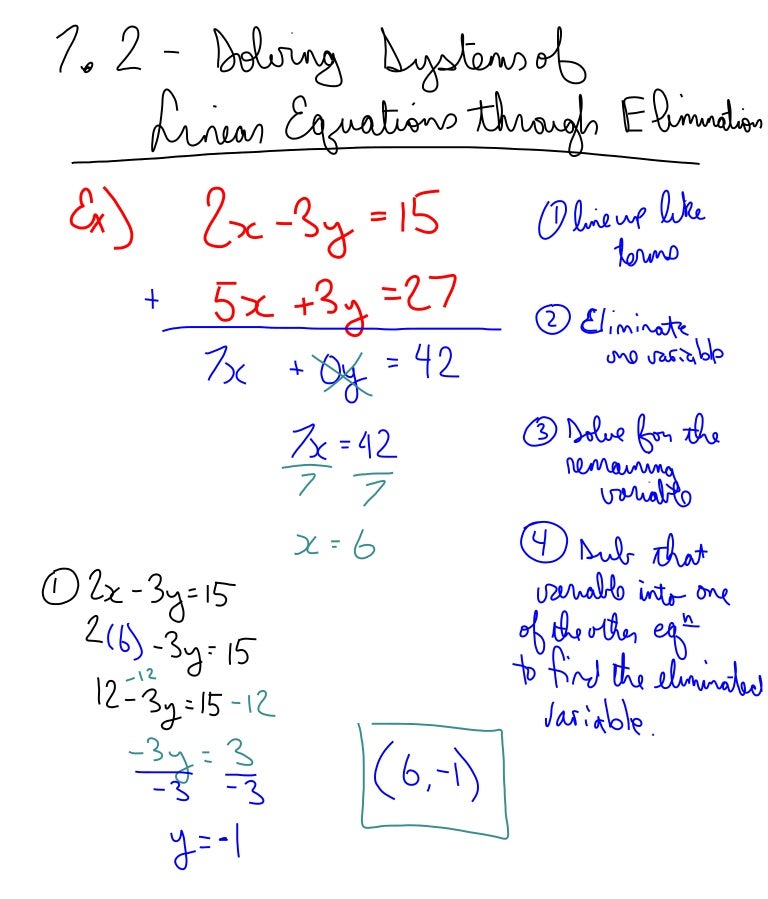 1.2 - Solving Systems of
Linear Equations through Elimination
Ex) 2x - 3y = 15
+ 5x + 3y = 27
7x + 0y = 42
7x = 42
7 7
x = 6
① line up like
terms
② Eliminate
one variable
③ Solve for the
remaining
variable
④ Sub that
variable into one
of the other eqⁿ
to find the eliminated
variable.
① 2x - 3y = 15
2(6) - 3y = 15
-12
12 - 3y = 15 - 12
-3y = 3
-3 -3
y = -1
(6, -1)